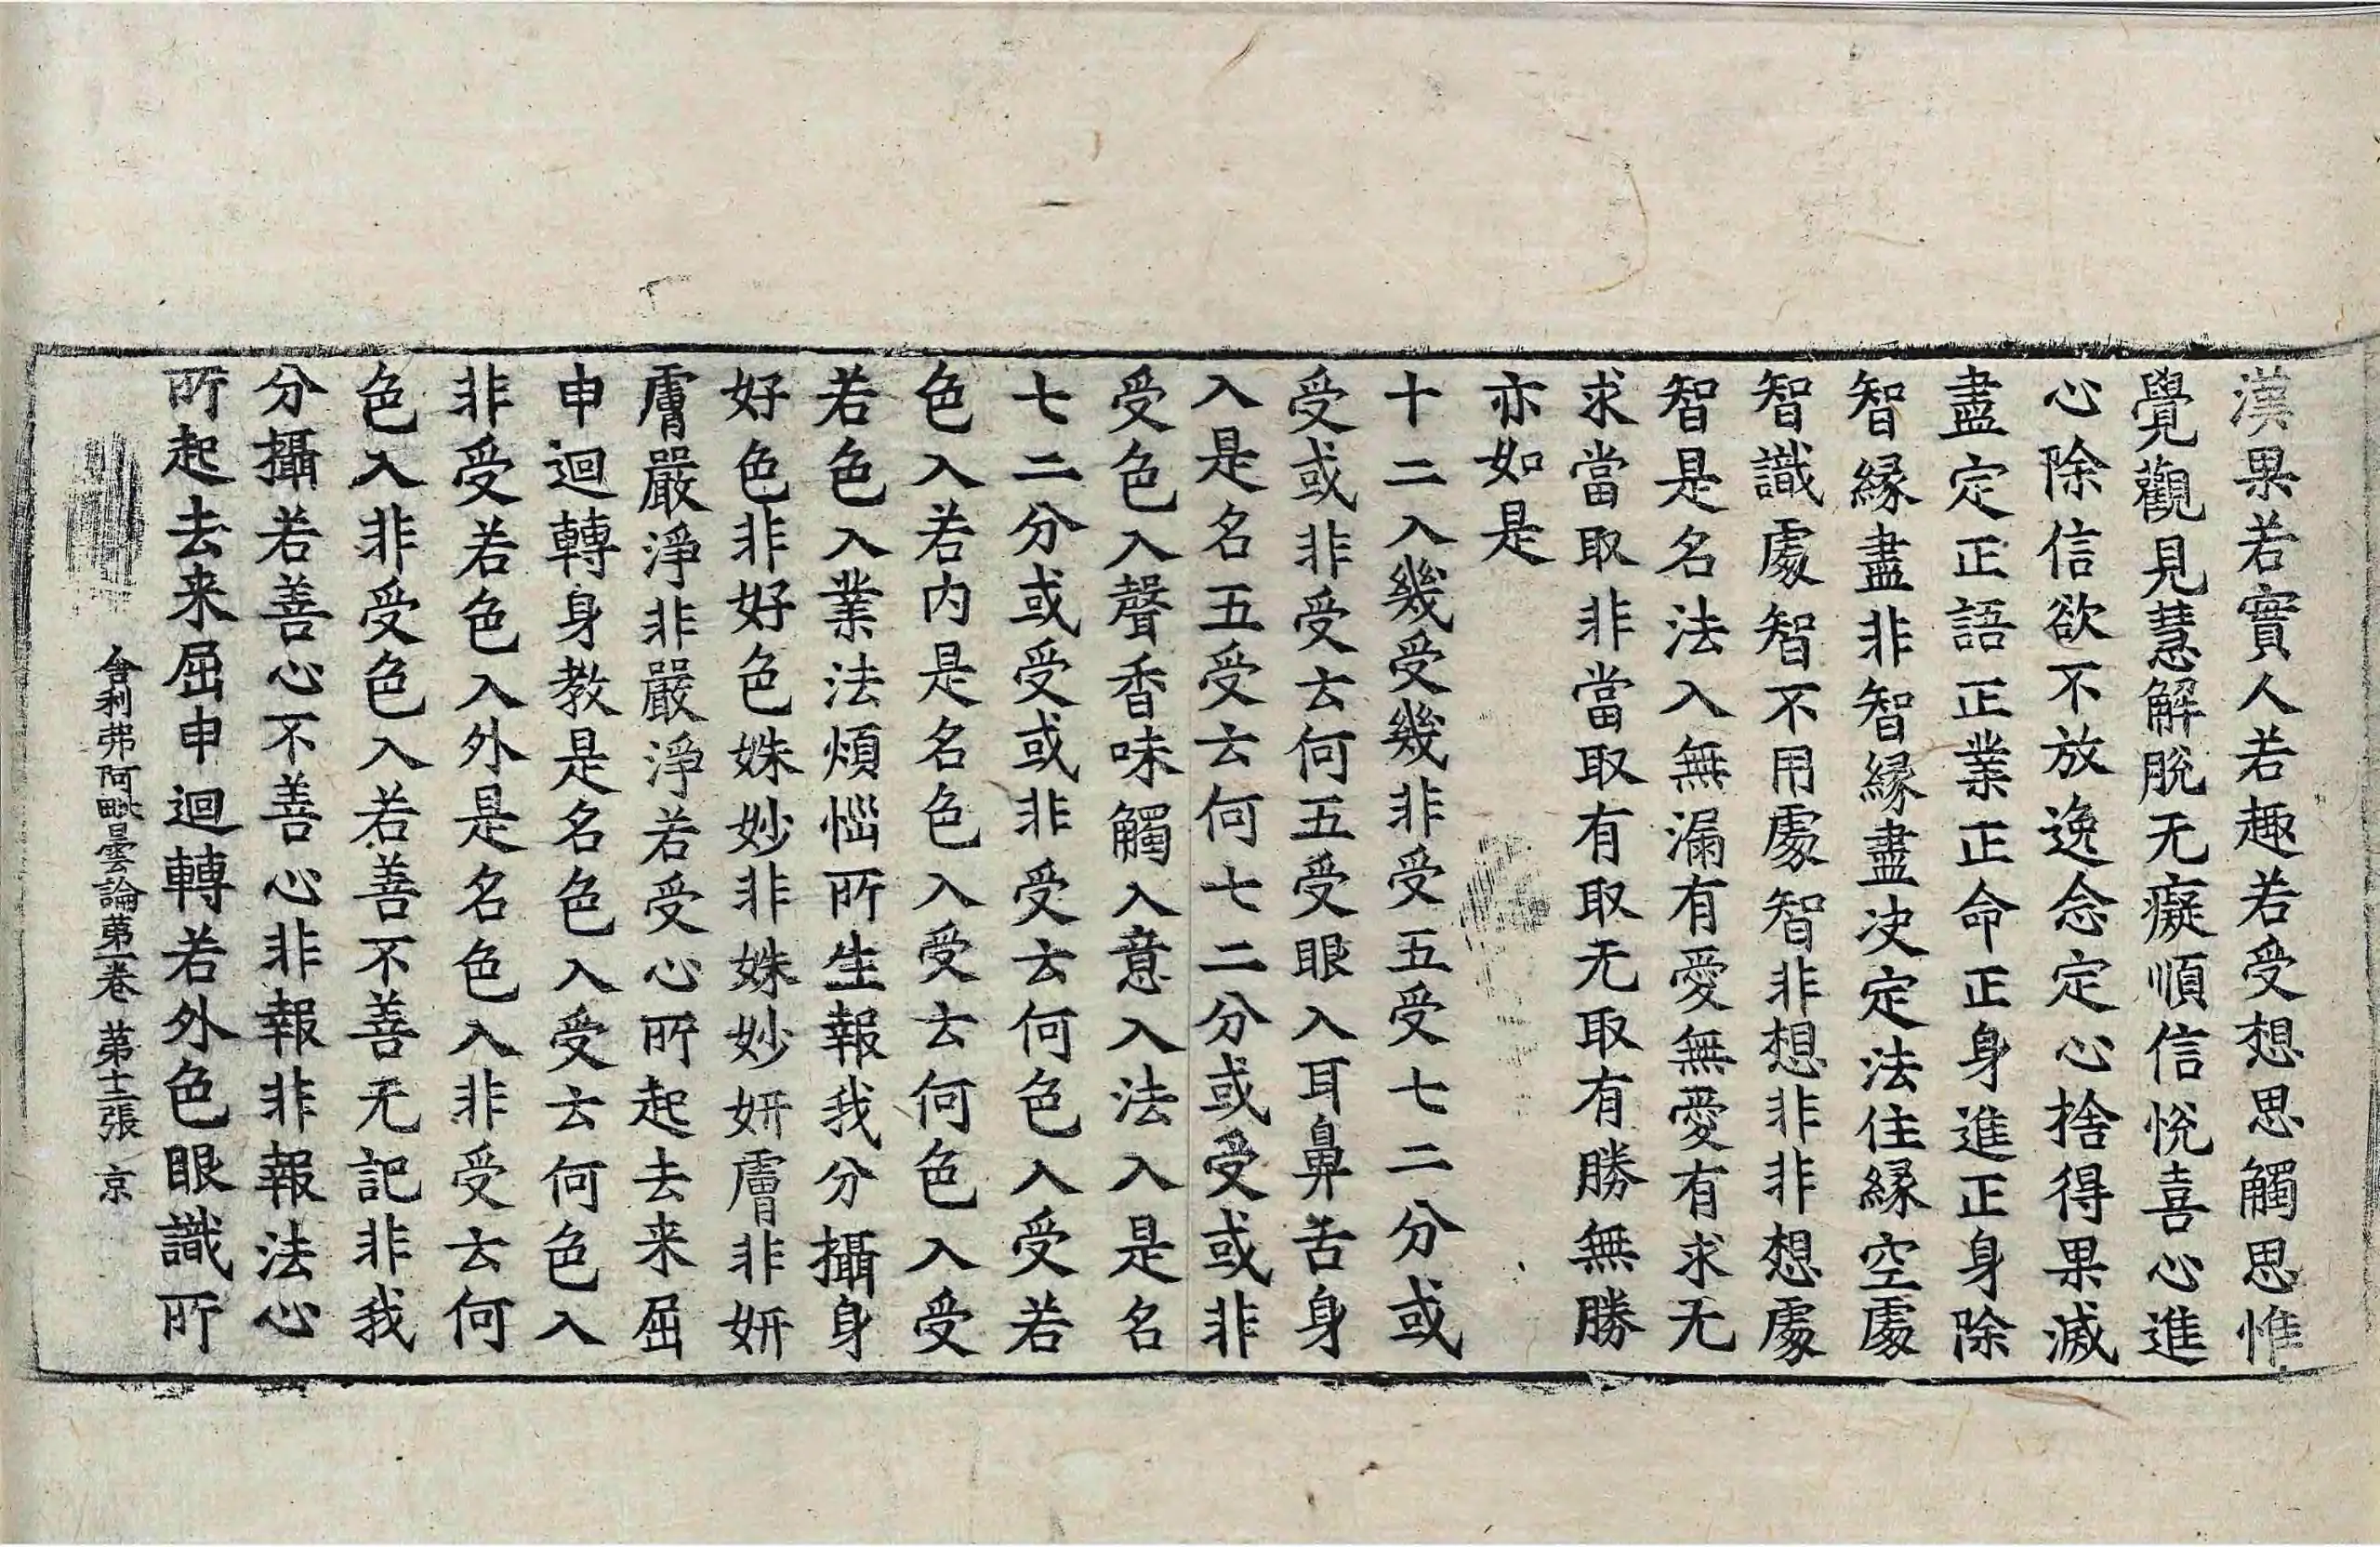 漢果若實人若趣若受想思觸思惟
覺觀見慧解脫无癡順信悅喜心進
心除信欲不放逸念定心捨得果滅
盡定正語正業正命正身進正身除
智縁盡非智縁盡决定法住縁空處
智識處智不用處智非想非非想處
智是名法入無漏有愛無愛有求无
求當取非當取有取无取有勝無勝
亦如是
十二入幾受幾非受五受七二分或
受或非受云何五受眼入耳鼻舌身
入是名五受云何七二分或受或非
受色入聲香味觸入意入法入是名
七二分或受或非受云何色入受若
色入若内是名色入受云何色入受
若色入業法煩惱所生報我分攝身
好色非好色姝妙非姝妙妍膚非妍
膚嚴淨非嚴淨若受心所起去来屈
申迴轉身教是名色入受云何色入
非受若色入外是名色入非受云何
色入非受色入若善不善无記非我
分攝若善心不善心非報非報法心
所起去来屈申迴轉若外色眼識所
舎利弗阿毗曇論苐一卷 苐十二張 京